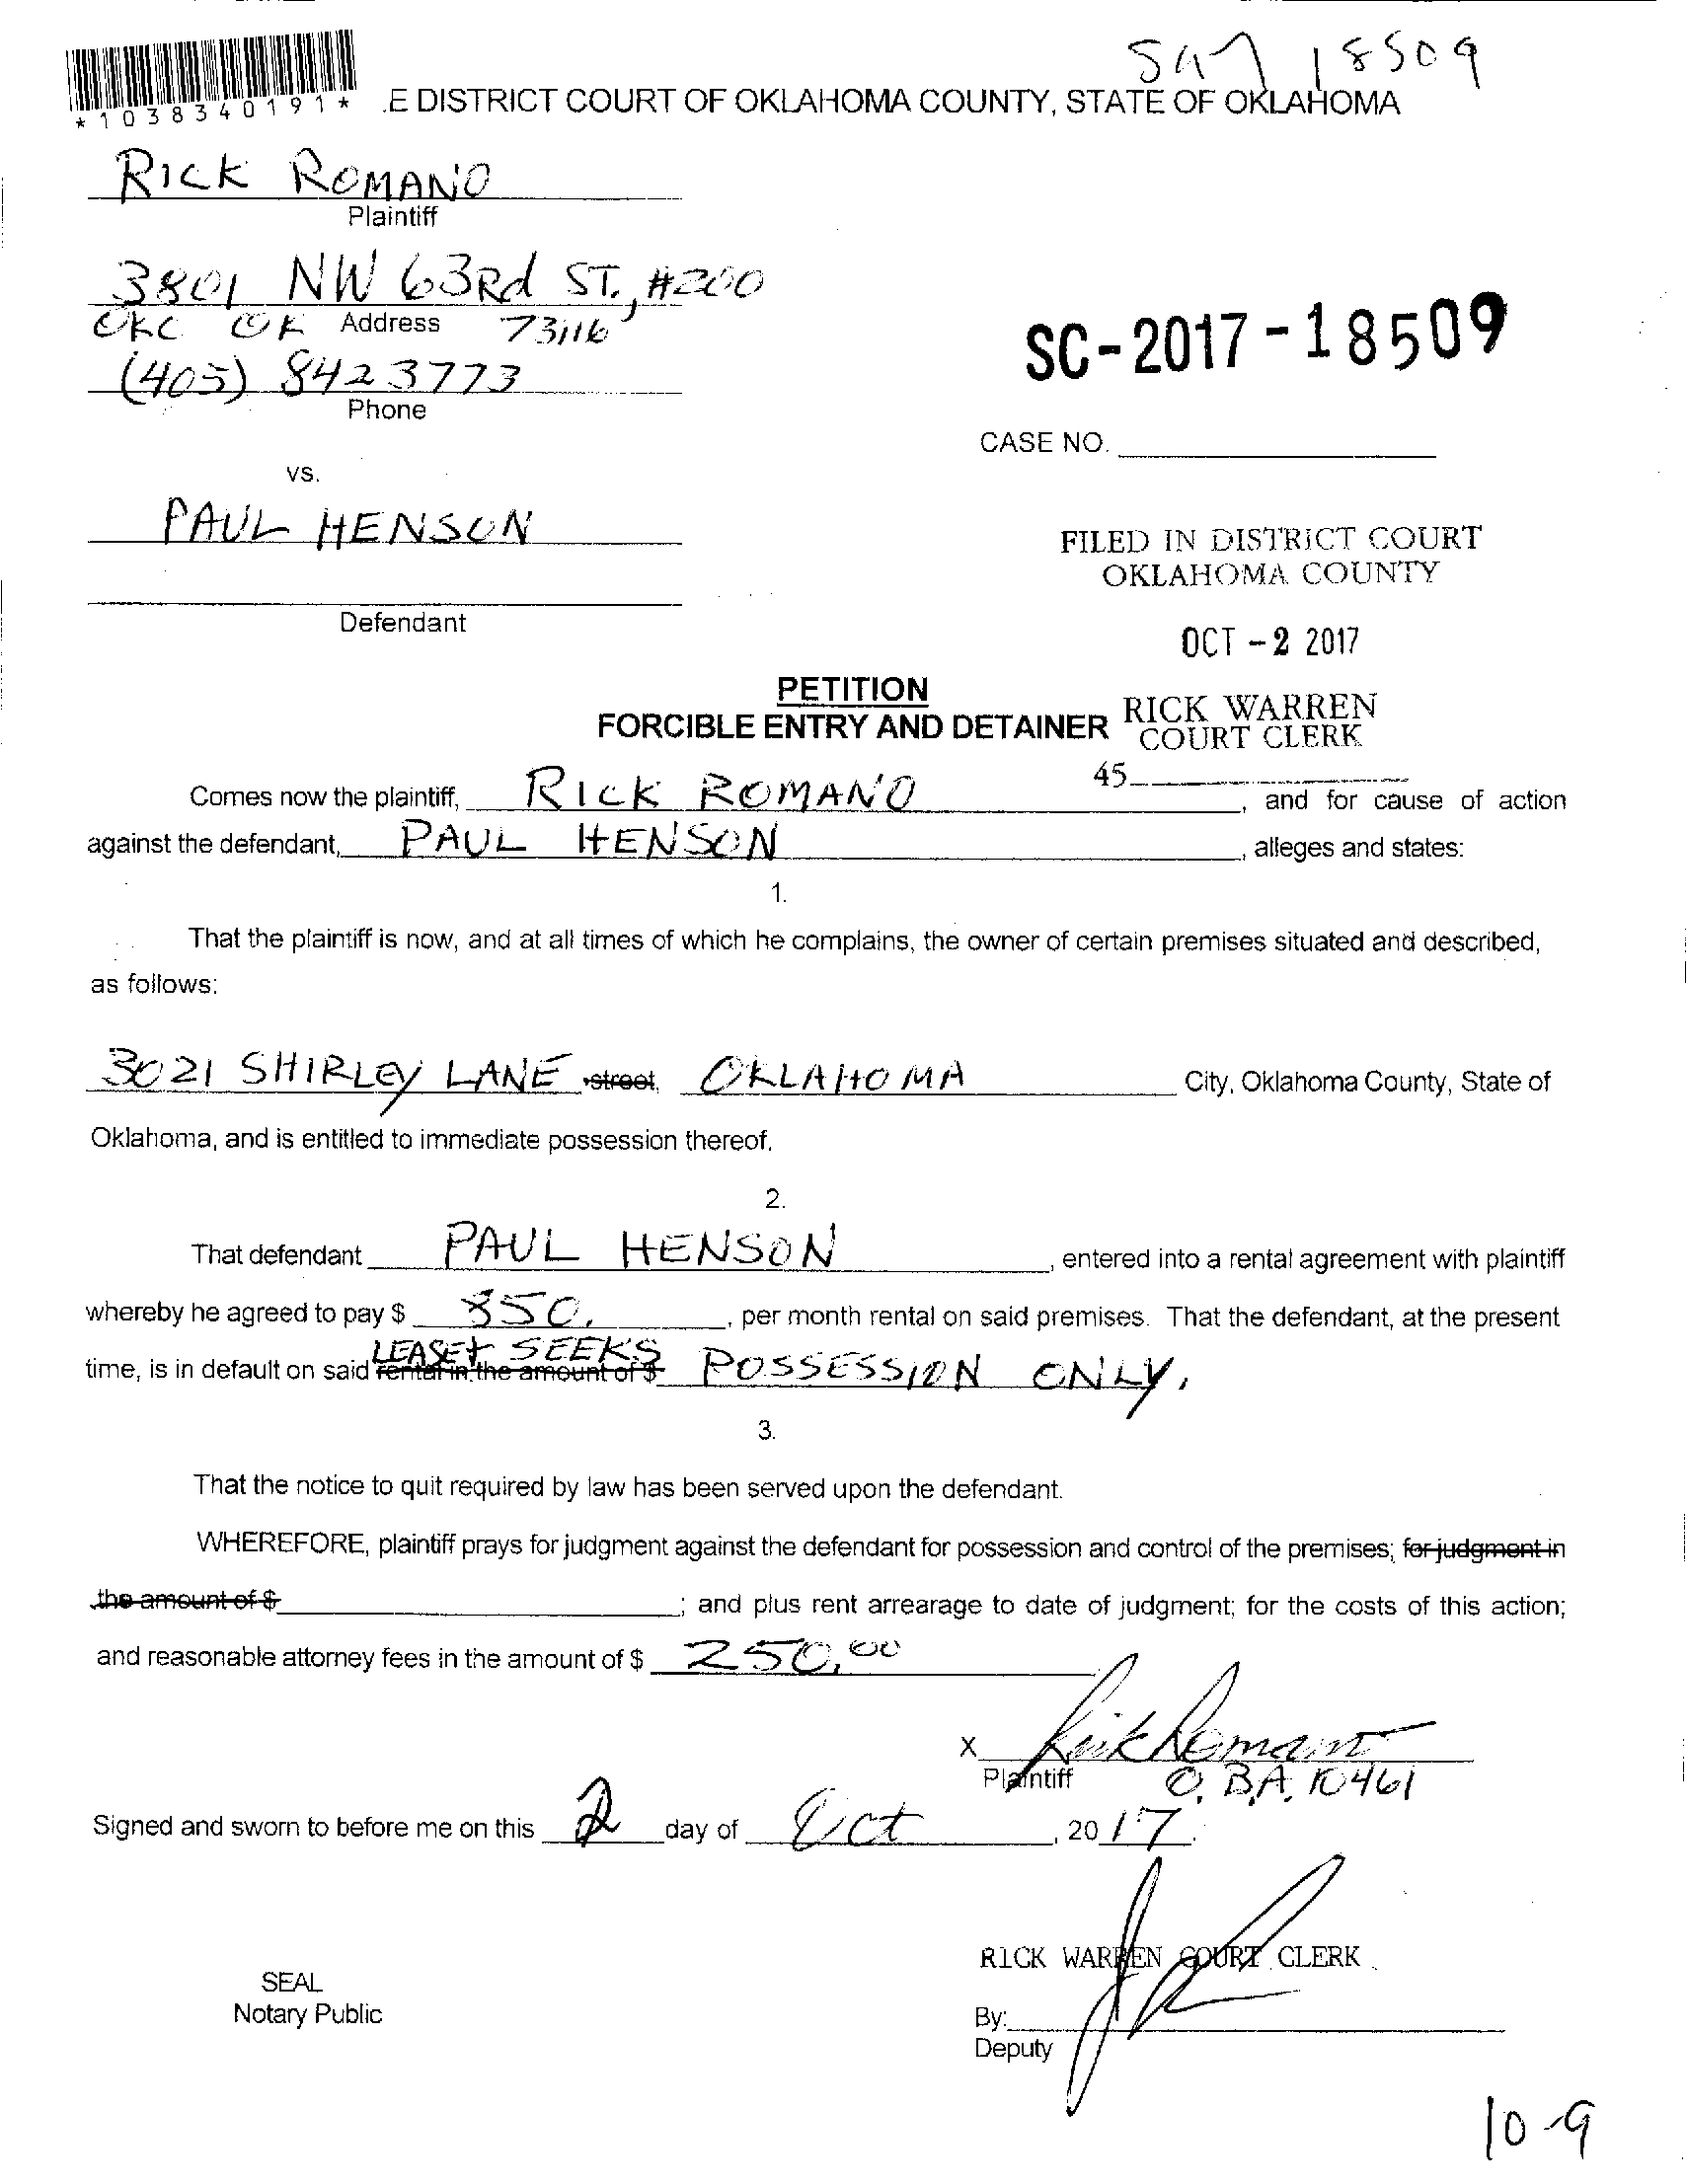 18509
*1038340191*
.E DISTRICT COURT OF OKLAHOMA COUNTY, STATE OF OKLAHOMA
RICK ROMANO
Plaintiff
3801 NW 63Rd ST., #200
OKC OK Address 73116
(405) 842 3773
Phone
SC-2017-18509
CASE NO.
vs.
PAUL HENSON
FILED IN DISTRICT COURT
OKLAHOMA COUNTY
Defendant
OCT -2 2017
PETITION
FORCIBLE ENTRY AND DETAINER
RICK WARREN
COURT CLERK
45
Comes now the plaintiff, RICK ROMANO, and for cause of action
against the defendant, PAUL HENSON, alleges and states:
1.
That the plaintiff is now, and at all times of which he complains, the owner of certain premises situated and described,
as follows:
3021 SHIRLEY LANE street, OKLAHOMA City, Oklahoma County, State of
Oklahoma, and is entitled to immediate possession thereof.
2.
That defendant PAUL HENSON, entered into a rental agreement with plaintiff
whereby he agreed to pay $ 850., per month rental on said premises. That the defendant, at the present
LEASE + SEEKS
time, is in default on said rental in the amount of $ POSSESSION ONLY.
3.
That the notice to quit required by law has been served upon the defendant.
WHEREFORE, plaintiff prays for judgment against the defendant for possession and control of the premises; for judgment in
the amount of $ ; and plus rent arrearage to date of judgment; for the costs of this action;
and reasonable attorney fees in the amount of $ 250.00
X Rick Romano
Plaintiff O.B.A. 10461
Signed and sworn to before me on this 2 day of Oct, 2017.
RICK WARREN COURT CLERK
SEAL
Notary Public
By:
Deputy
10-9